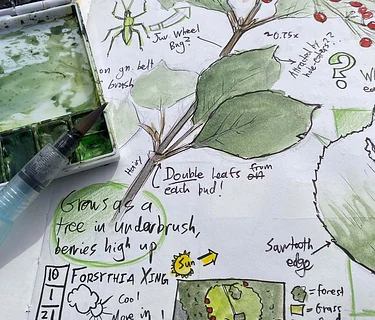 Juv. Wheel
Bug?
~0.75x
Attracted by
on gn. belt
brush
Hairy
Double leafs from
each bud!
Grows as a
tree in underbrush,
berries high up
Sawtooth
edge
10
FORSYTHIA XING
1
21
Sun
Cool!
Move in!
= forest
= Grass
?